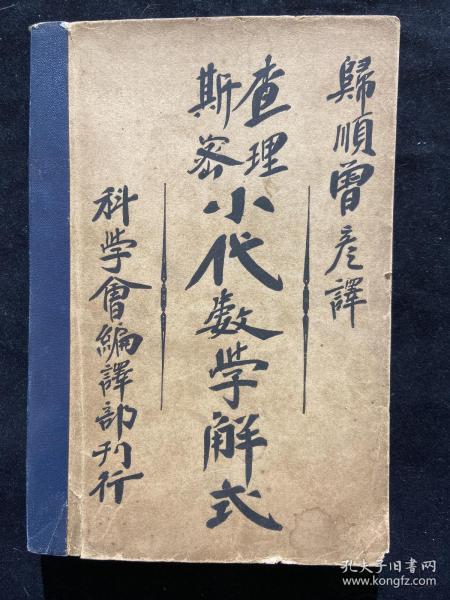 歸順曾彥譯
查理
斯密
小代數学解式
科学會編譯部刊行
孔夫子旧书网
www.kongfz.com